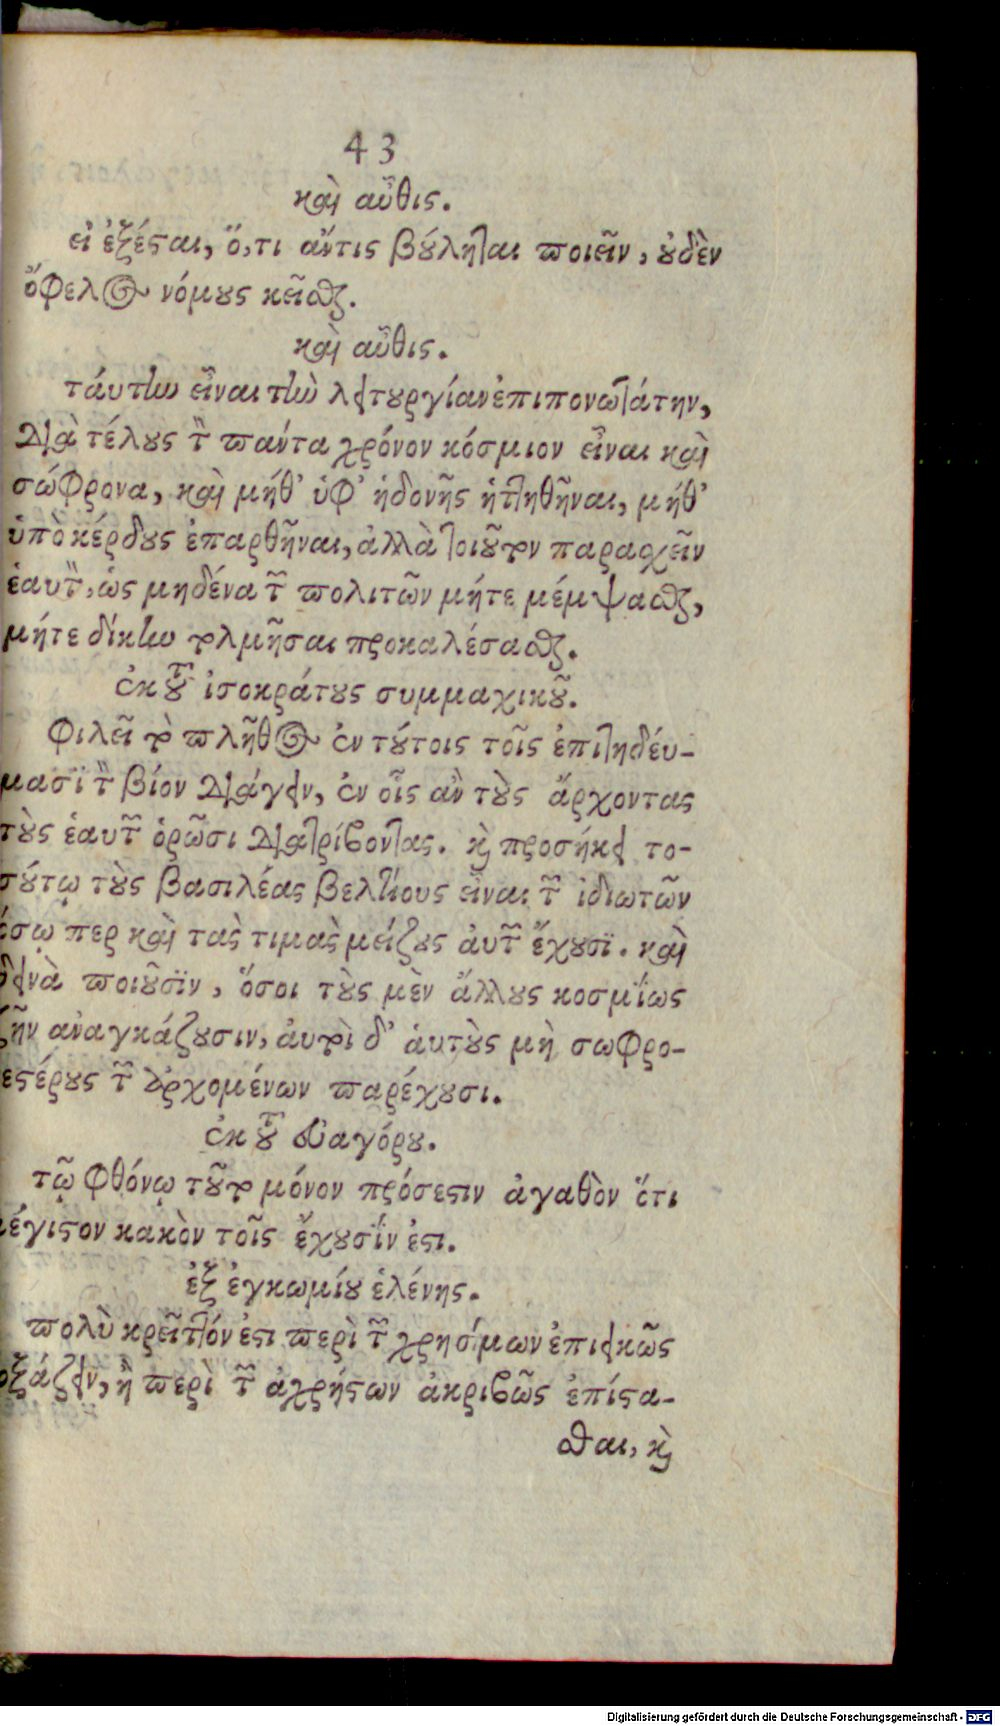 43
καὶ αὖθις.
εἰ ἐξέσται, ὅ,τι ἄντις βούληται ποιεῖν, οὐδὲν
ὄφελος νόμους κεῖσθαι.
καὶ αὖθις.
ταύτην εἶναι τὴν λειτουργίαν ἐπιπονωτάτην,
διὰ τέλους τὸν πάντα χρόνον κόσμιον εἶναι καὶ
σώφρονα, καὶ μήθ’ ὑφ’ ἡδονῆς ἡττηθῆναι, μήθ’
ὑπὸ κέρδους ἐπαρθῆναι, ἀλλὰ τοιοῦτον παρασχεῖν
ἑαυτὸν, ὡς μηδένα τῶν πολιτῶν μήτε μέμψασθαι,
μήτε δίκην τολμῆσαι προκαλέσασθαι.
ἐκ τοῦ ἰσοκράτους συμμαχικοῦ.
φιλεῖ τὸ πλῆθος ἐν τούτοις τοῖς ἐπιτηδεύ-
μασὶ τὸν βίον διάγειν, ἐν οἷς ἂν τοὺς ἄρχοντας
τοὺς ἑαυτῶν ὁρῶσι διατρίβοντας. καὶ προσήκει το-
σούτῳ τοὺς βασιλέας βελτίους εἶναι τῶν ἰδιωτῶν
ὅσῳ περ καὶ τὰς τιμὰς μείζους αὐτῶν ἔχουσι. καὶ
δεινὰ ποιοῦσιν, ὅσοι τοὺς μὲν ἄλλους κοσμίως
ζῆν ἀναγκάζουσιν, αὐτοὶ δ’ αὑτοὺς μὴ σωφρο-
εστέρους τῶν ἀρχομένων παρέχουσι.
ἐκ τοῦ εὐαγόρου.
τῷ φθόνῳ τοῦτο μόνον πρόσεστιν ἀγαθὸν ὅτι
μέγιστον κακὸν τοῖς ἔχουσίν ἐστι.
ἐξ ἐγκωμίου ἑλένης.
πολὺ κρεῖττόν ἐστι περὶ τῶν χρησίμων ἐπιεικῶς
δοξάζειν, ἢ περὶ τῶν ἀχρήστων ἀκριβῶς ἐπίστα-
σθαι, καὶ
Digitalisierung gefördert durch die Deutsche Forschungsgemeinschaft - DFG